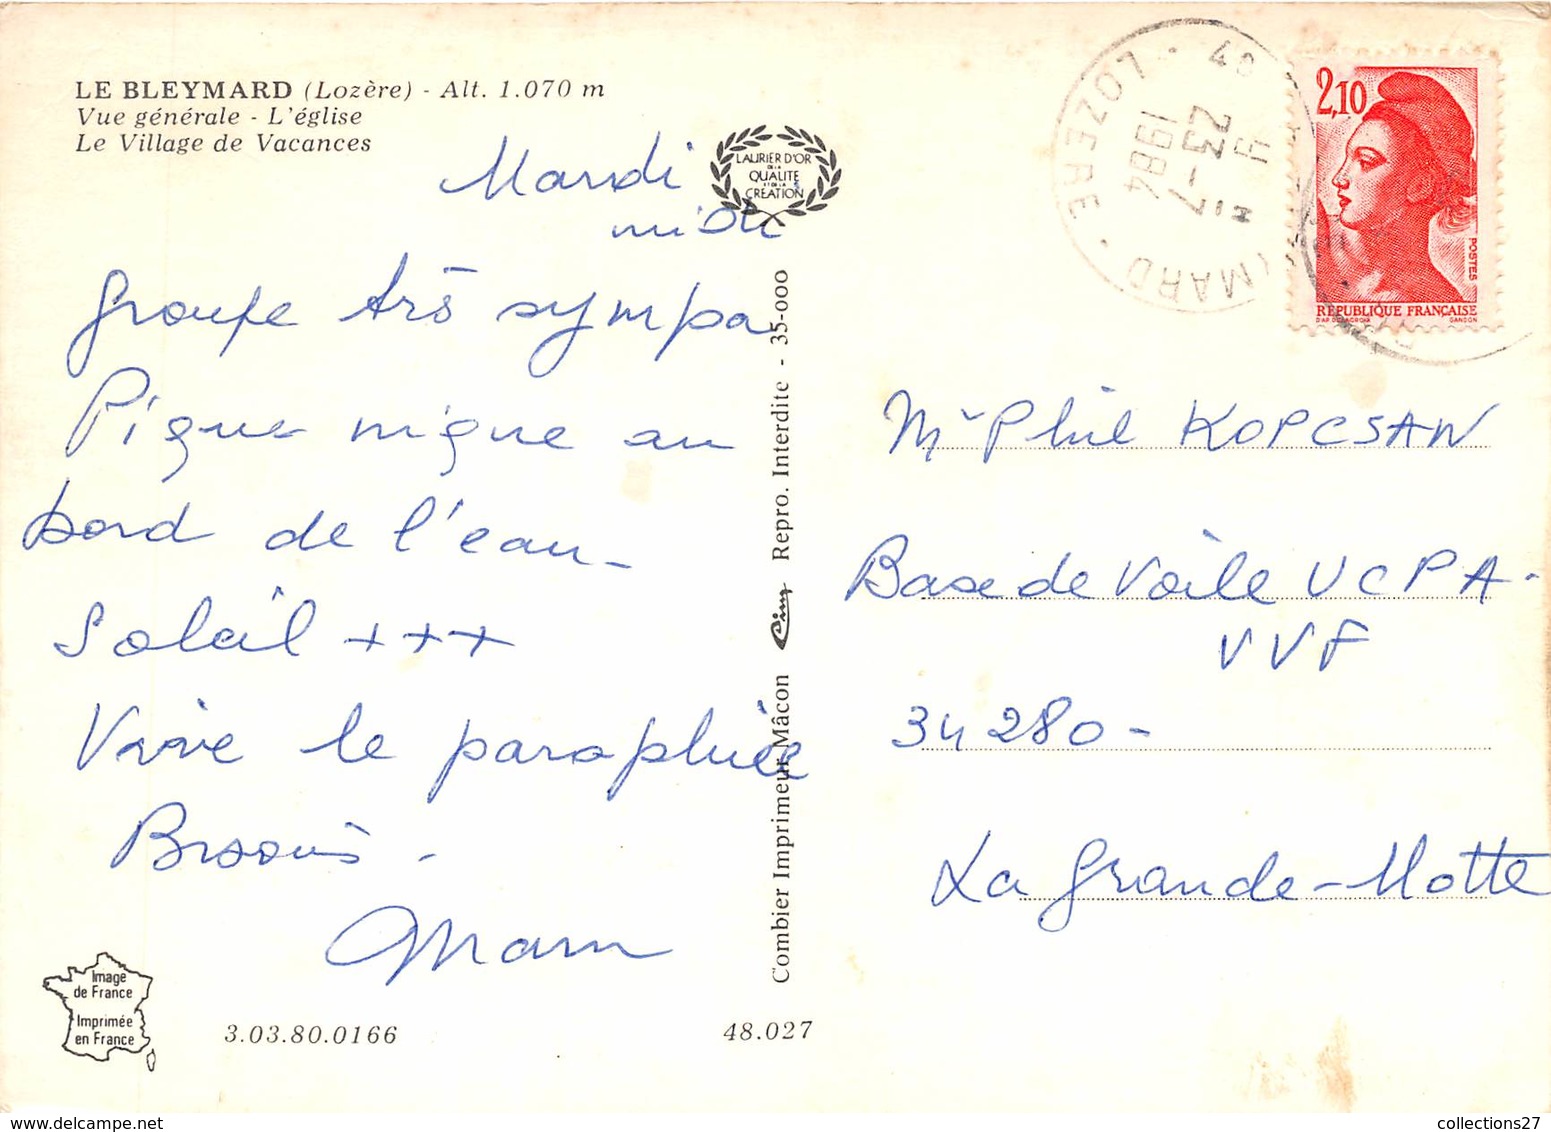 LE BLEYMARD (Lozère) - Alt. 1.070 m
Vue générale - L'église
Le Village de Vacances
LAURIER D'OR
DE LA
QUALITÉ
ET DE LA
CRÉATION
Mardi
midi
groupe très sympa
Pique nique au
bord de l'eau_
Soleil +++
Vive le paraphlée
Bisous -
Mam
Image
de France
Imprimée
en France
3.03.80.0166
48.027
Combier Imprimeur Mâcon Cim Repro. Interdite - 35-000
48
H
23-7
1984
LOZERE
MARD
2,10
POSTES
RÉPUBLIQUE FRANÇAISE
D'AP DELACROIX GANDON
Mr Phil KOPCSAN
Base de Voile UCPA-
VVF
34 280 -
La Grande-Motte
collections27